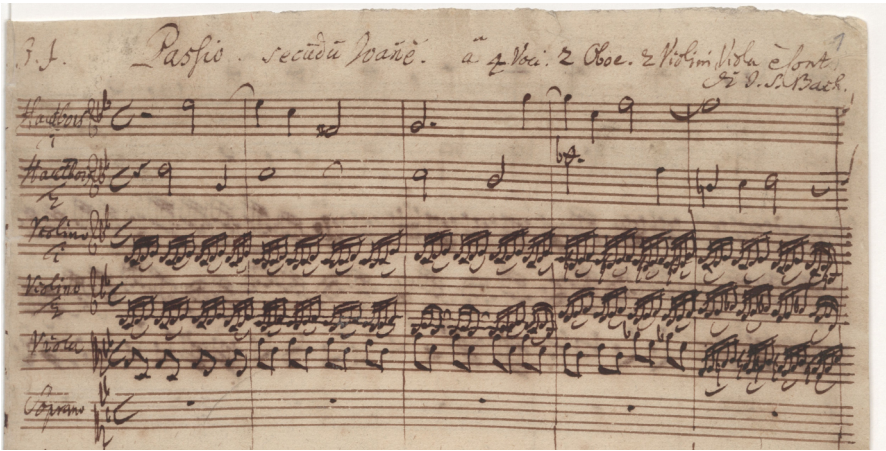 J. J. Passio. secūdū Joañē. à 4 Voci. 2 Oboe. 2 Violini Viola è Cont.
di J. S. Bach.
Hautbois
1
Hautbois
2
Violino
1
Violino
2
Viola
Soprano